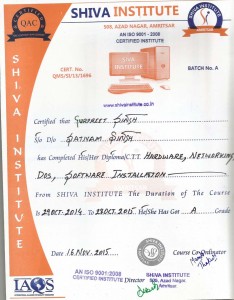 SHIVA INSTITUTE
SSS. AZAD NAGAR, AMRITSAR
AN ISO 9001 - 2008
CERTIFIED INSTITUTE
QAC
SHIVA INSTITUTE
CERT. NO.
BATCH No. A
www.shivainstitute.co.in
SHIVA INSTITUTE
Certified that Gurpreet Singh
S/o D/o Satnam Singh
has Completed His/Her Diploma(C.T.T. Hardware, Networking
Dos, Software Installation
From SHIVA INSTITUTE The Duration of The Course
Is 29 Oct. 2014 To 28 Oct. 2015 He/She Has Got A Grade
Date 16 Nov. 2015
Course Co-ordinator
IAQS
AN ISO 9001-2008
CERTIFIED INSTITUTE
Director
SHIVA INSTITUTE
SSS. Azad Nagar
Amritsar